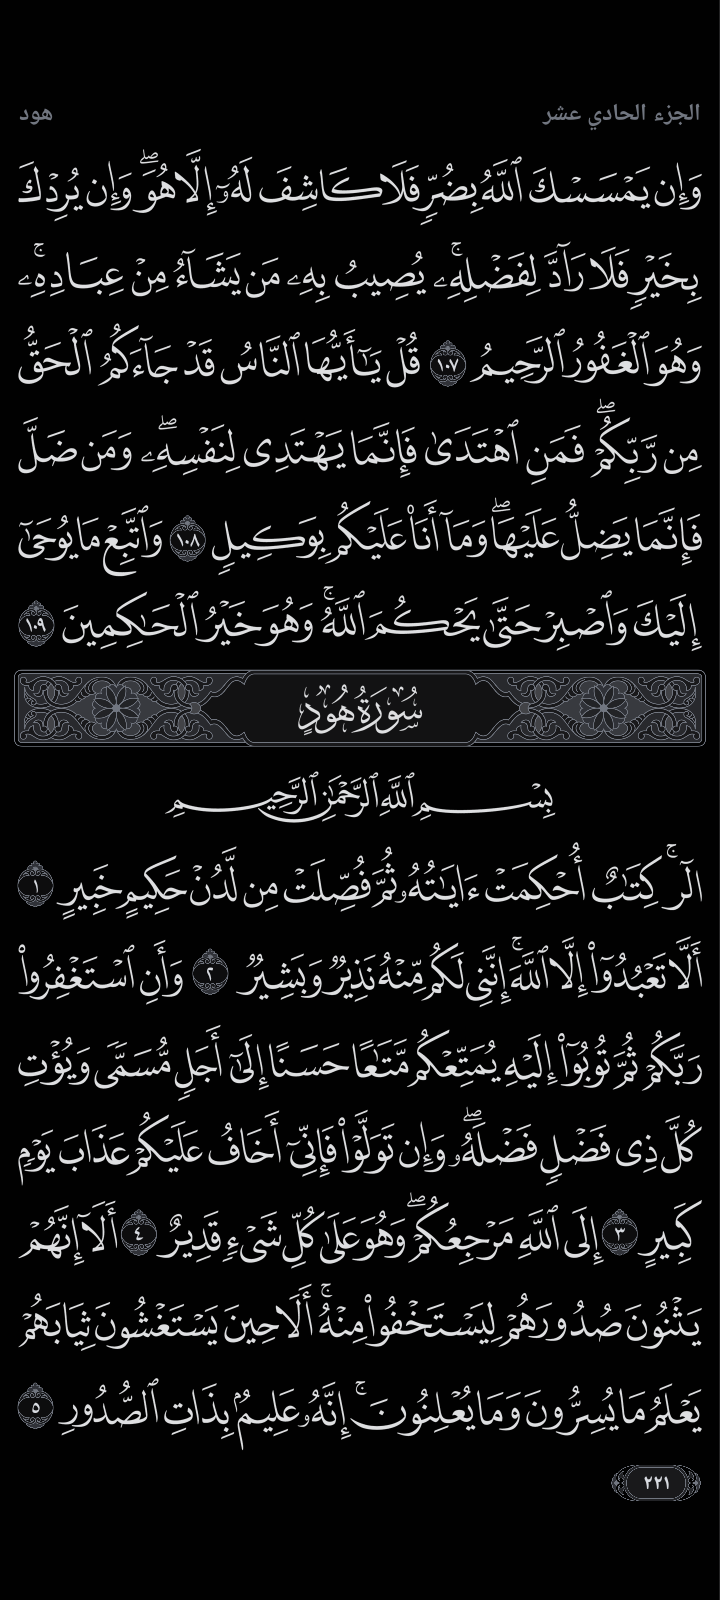 الجزء الحادي عشر
هود
وَإِن يَمۡسَسۡكَ ٱللَّهُ بِضُرّٖ فَلَا كَاشِفَ لَهُۥٓ إِلَّا هُوَۖ وَإِن يُرِدۡكَ
بِخَيۡرٖ فَلَا رَآدَّ لِفَضۡلِهِۦۚ يُصِيبُ بِهِۦ مَن يَشَآءُ مِنۡ عِبَادِهِۦۚ
وَهُوَ ٱلۡغَفُورُ ٱلرَّحِيمُ ١٠٧ قُلۡ يَٰٓأَيُّهَا ٱلنَّاسُ قَدۡ جَآءَكُمُ ٱلۡحَقُّ
مِن رَّبِّكُمۡۖ فَمَنِ ٱهۡتَدَىٰ فَإِنَّمَا يَهۡتَدِي لِنَفۡسِهِۦۖ وَمَن ضَلَّ
فَإِنَّمَا يَضِلُّ عَلَيۡهَاۖ وَمَآ أَنَا۠ عَلَيۡكُم بِوَكِيلٖ ١٠٨ وَٱتَّبِعۡ مَا يُوحَىٰٓ
إِلَيۡكَ وَٱصۡبِرۡ حَتَّىٰ يَحۡكُمَ ٱللَّهُۚ وَهُوَ خَيۡرُ ٱلۡحَٰكِمِينَ ١٠٩
سُورَةُ هُودٍ
بِسۡمِ ٱللَّهِ ٱلرَّحۡمَٰنِ ٱلرَّحِيمِ
الٓرۚ كِتَٰبٌ أُحۡكِمَتۡ ءَايَٰتُهُۥ ثُمَّ فُصِّلَتۡ مِن لَّدُنۡ حَكِيمٍ خَبِيرٍ ١
أَلَّا تَعۡبُدُوٓاْ إِلَّا ٱللَّهَۚ إِنَّنِي لَكُم مِّنۡهُ نَذِيرٞ وَبَشِيرٞ ٢ وَأَنِ ٱسۡتَغۡفِرُواْ
رَبَّكُمۡ ثُمَّ تُوبُوٓاْ إِلَيۡهِ يُمَتِّعۡكُم مَّتَٰعًا حَسَنًا إِلَىٰٓ أَجَلٖ مُّسَمّٗى وَيُؤۡتِ
كُلَّ ذِي فَضۡلٖ فَضۡلَهُۥۖ وَإِن تَوَلَّوۡاْ فَإِنِّيٓ أَخَافُ عَلَيۡكُمۡ عَذَابَ يَوۡمٖ
كَبِيرٍ ٣ إِلَى ٱللَّهِ مَرۡجِعُكُمۡۖ وَهُوَ عَلَىٰ كُلِّ شَيۡءٖ قَدِيرٌ ٤ أَلَآ إِنَّهُمۡ
يَثۡنُونَ صُدُورَهُمۡ لِيَسۡتَخۡفُواْ مِنۡهُۚ أَلَا حِينَ يَسۡتَغۡشُونَ ثِيَابَهُمۡ
يَعۡلَمُ مَا يُسِرُّونَ وَمَا يُعۡلِنُونَۚ إِنَّهُۥ عَلِيمُۢ بِذَاتِ ٱلصُّدُورِ ٥
٢٢١